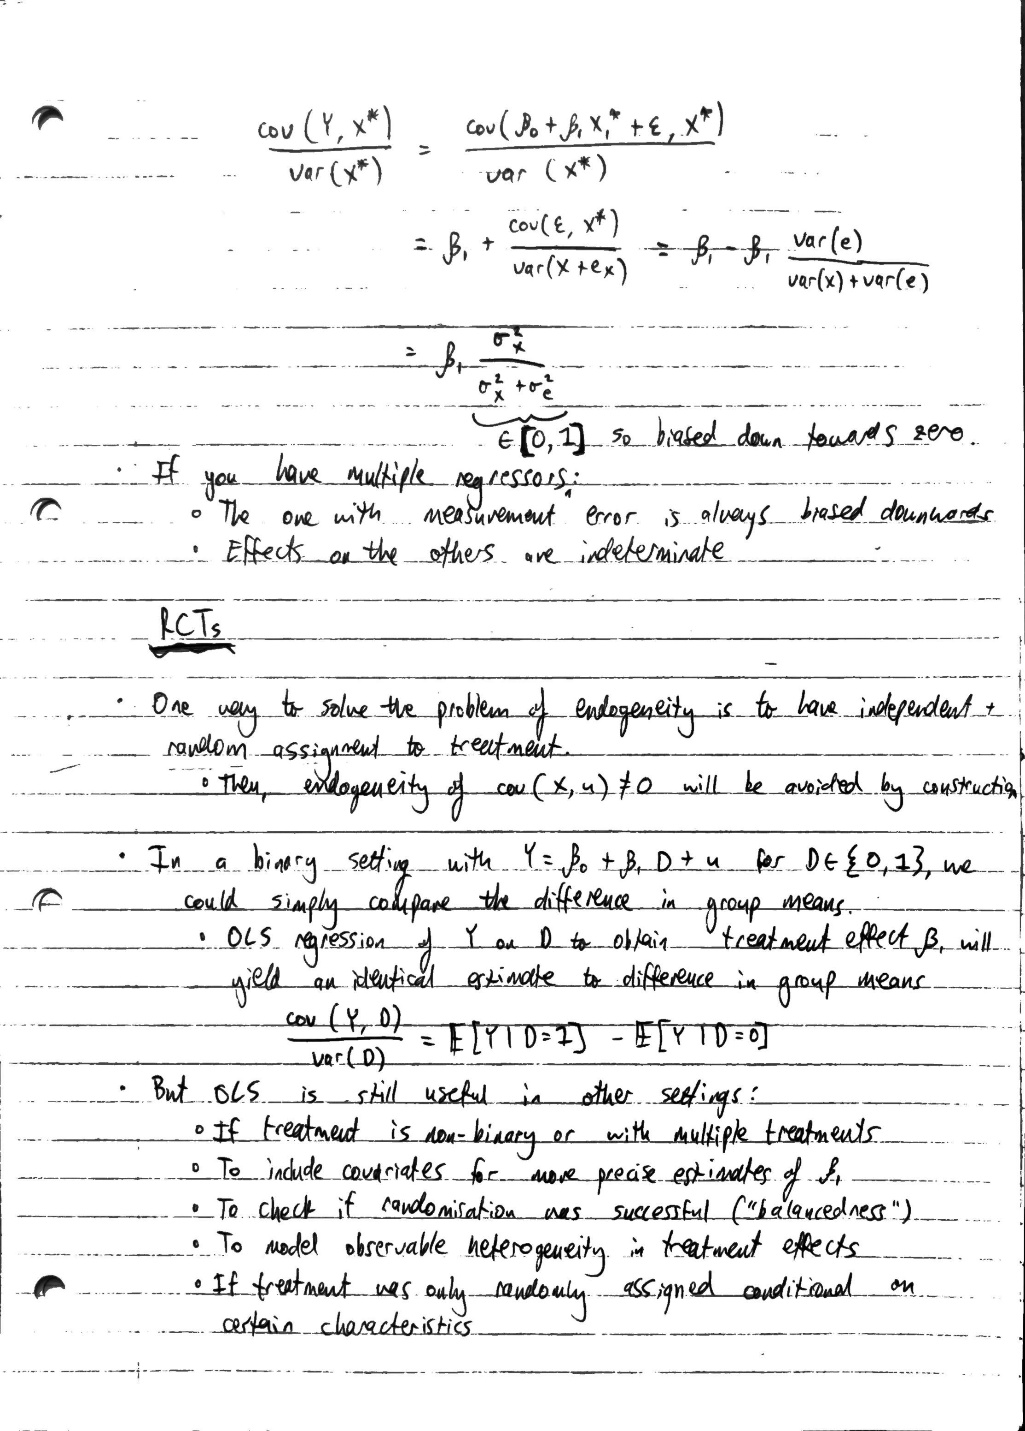 cov(Y, X*) / var(X*) = cov(β₀ + β₁X₁* + ε, X*) / var(X*)
= β₁ + cov(ε, X*) / var(X + eₓ) = β₁ - β₁ var(e) / var(x) + var(e)
= β₁ σ²ₓ / σ²ₓ + σ²ₑ
∈ [0, 1] so biased down towards zero.
· If you have multiple regressors:
∘ The one with measurement error is always biased downwards
· Effects on the others are indeterminate
RCTs
· One way to solve the problem of endogeneity is to have independent +
random assignment to treatment.
∘ Then, endogeneity of cov(X, u) ≠ 0 will be avoided by construction
· In a binary setting with Y = β₀ + β₁D + u for D ∈ {0, 1}, we
could simply compare the difference in group means.
· OLS regression of Y on D to obtain treatment effect β₁ will
yield an identical estimate to difference in group means
cov(Y, D) / var(D) = E[Y | D=1] - E[Y | D=0]
· But OLS is still useful in other settings:
∘ If treatment is non-binary or with multiple treatments
∘ To include covariates for more precise estimates of β₁
∘ To check if randomisation was successful ("balancedness")
· To model observable heterogeneity in treatment effects
∘ If treatment was only randomly assigned conditional on
certain characteristics